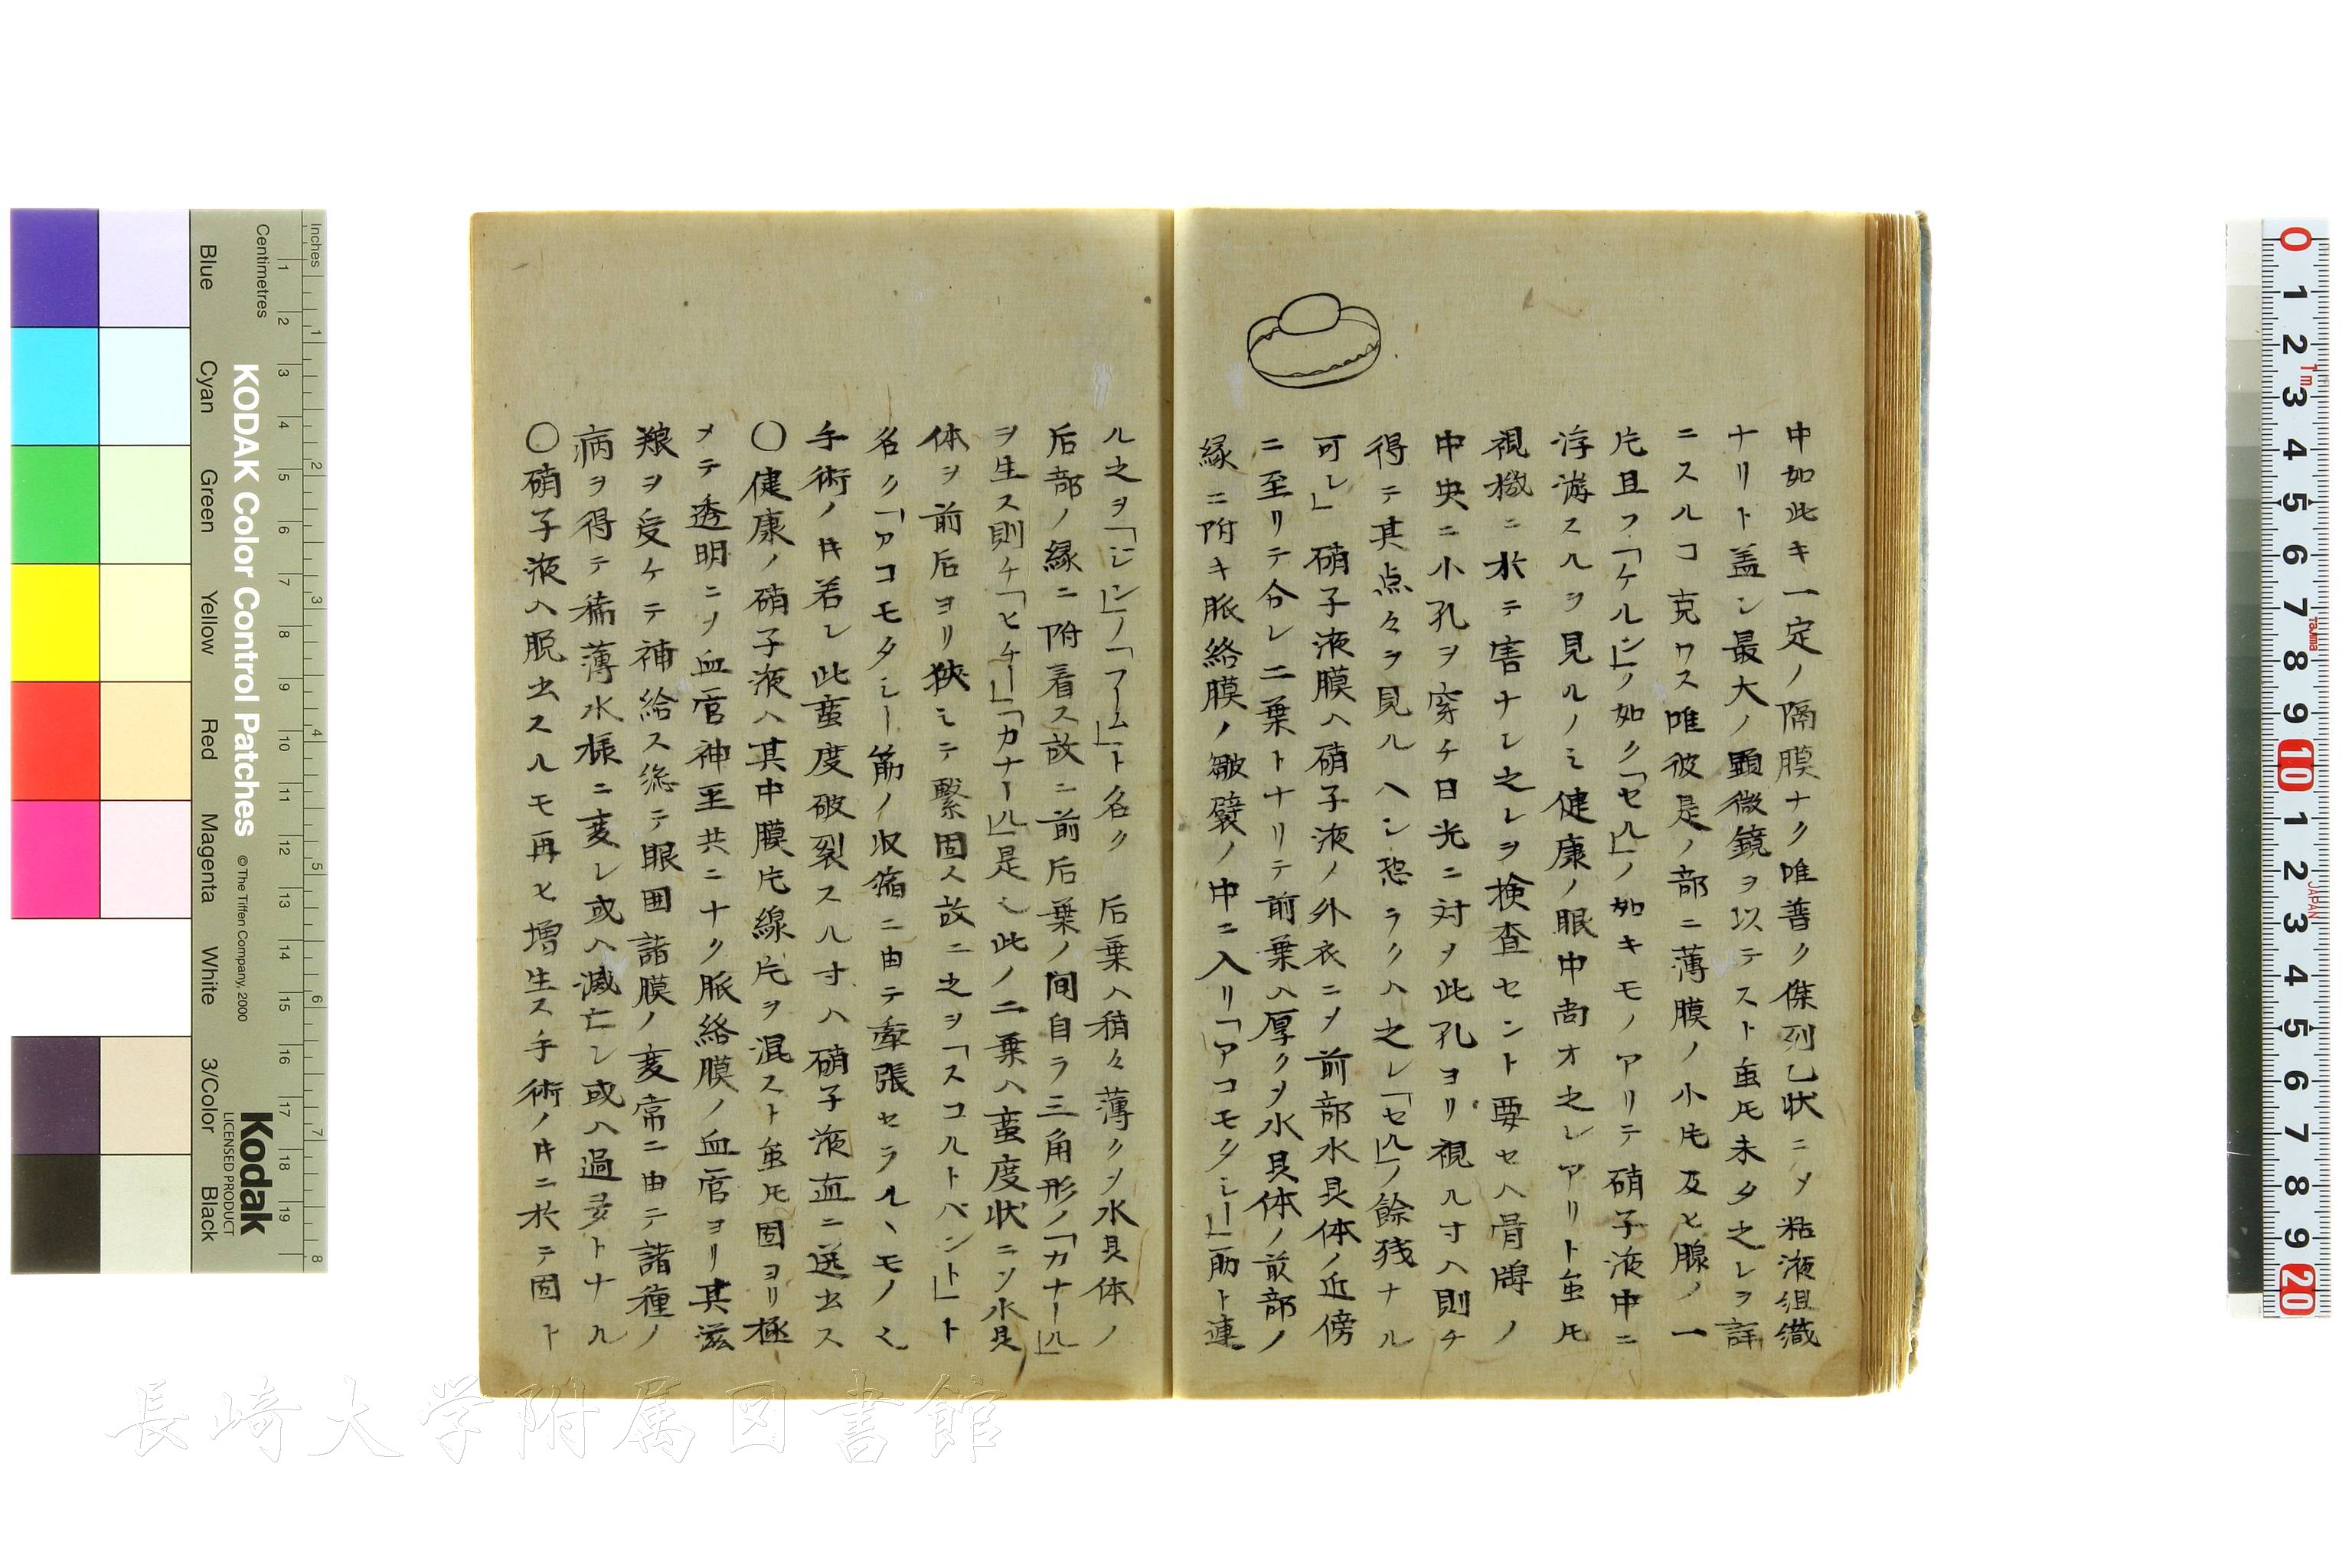 中如此キ一定ノ隔膜ナク唯普ク傑列乙状ニメ粘液組織
ナリト盖シ最大ノ顕微鏡ヲ以テスト虽𪜈未タ之レヲ詳
ニスルコ克ワス唯彼是ノ部ニ薄膜ノ小片及ヒ腺ノ一
片且ツ「ケルン」ノ如ク「セル」ノ如キモノアリテ硝子液中ニ
浮游スルヲ見ルノミ健康ノ眼中尚オ之レアリト虽𪜈
視機ニ於テ害ナシ之レヲ検査セント要セハ骨牌ノ
中央ニ小孔ヲ穿チ日光ニ対メ此孔ヨリ視ル寸ハ則チ
得テ其点々ヲ見ルヘシ恐ラクハ之レ「セル」ノ餘残ナル
可シ」硝子液膜ハ硝子液ノ外衣ニメ前部水晶体ノ近傍
ニ至リテ分レ二葉トナリテ前葉ハ厚クメ水晶体ノ前部ノ
縁ニ附キ脈絡膜ノ皺襞ノ中ニ入リ「アコモタシー」筋ト連
ル之ヲ「ジン」ノ「フーム」ト名ク 后葉ハ稍々薄クメ水晶体ノ
后部ノ縁ニ附着ス故ニ前后葉ノ間自ラ三角形ノ「カナール」
ヲ生ス則チ「ヒチー」「カナール」是レ此ノ二葉ハ蛮度状ニメ水晶
体ヲ前后ヨリ狹ミテ繫固ス故ニ之ヲ「スコルトバンド」ト
名ク「アコモタシー筋ノ収縮ニ由テ牽張セラル、モノミ
手術ノ𪜈若シ此蛮度破裂スル寸ハ硝子液直ニ迸出ス
〇健康ノ硝子液ハ其中膜片線片ヲ混スト虽𪜈固ヨリ極
メテ透明ニメ血官神至共ニナク脈絡膜ノ血官ヨリ其滋
粮ヲ受ケテ補給ス総テ眼囲諸膜ノ変常ニ由テ諸種ノ
病ヲ得テ稀薄水様ニ変シ或ハ減亡シ或ハ過多トナル
〇硝子液ハ脱出スルモ再ヒ増生ス手術ノ𪜈ニ於テ固ト
KODAK Color Control Patches
© The Tiffen Company, 2000
Kodak
LICENSED PRODUCT
Inches
Centimetres
Blue
Cyan
Green
Yellow
Red
Magenta
White
3/Color
Black
長崎大学附属図書館